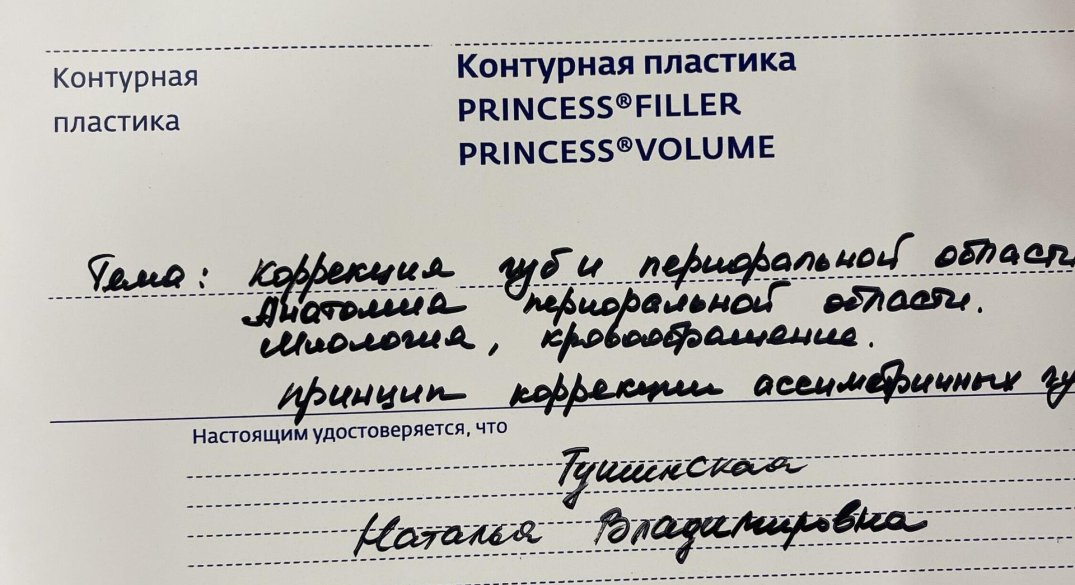 Контурная
пластика
Контурная пластика
PRINCESS®FILLER
PRINCESS®VOLUME
Тема: Коррекция губ и периоральной области
Анатомия периоральной области.
Миология, кровообращение.
принцип коррекции ассиметричных гу
Настоящим удостоверяется, что
Тушинская
Наталья Владимировна